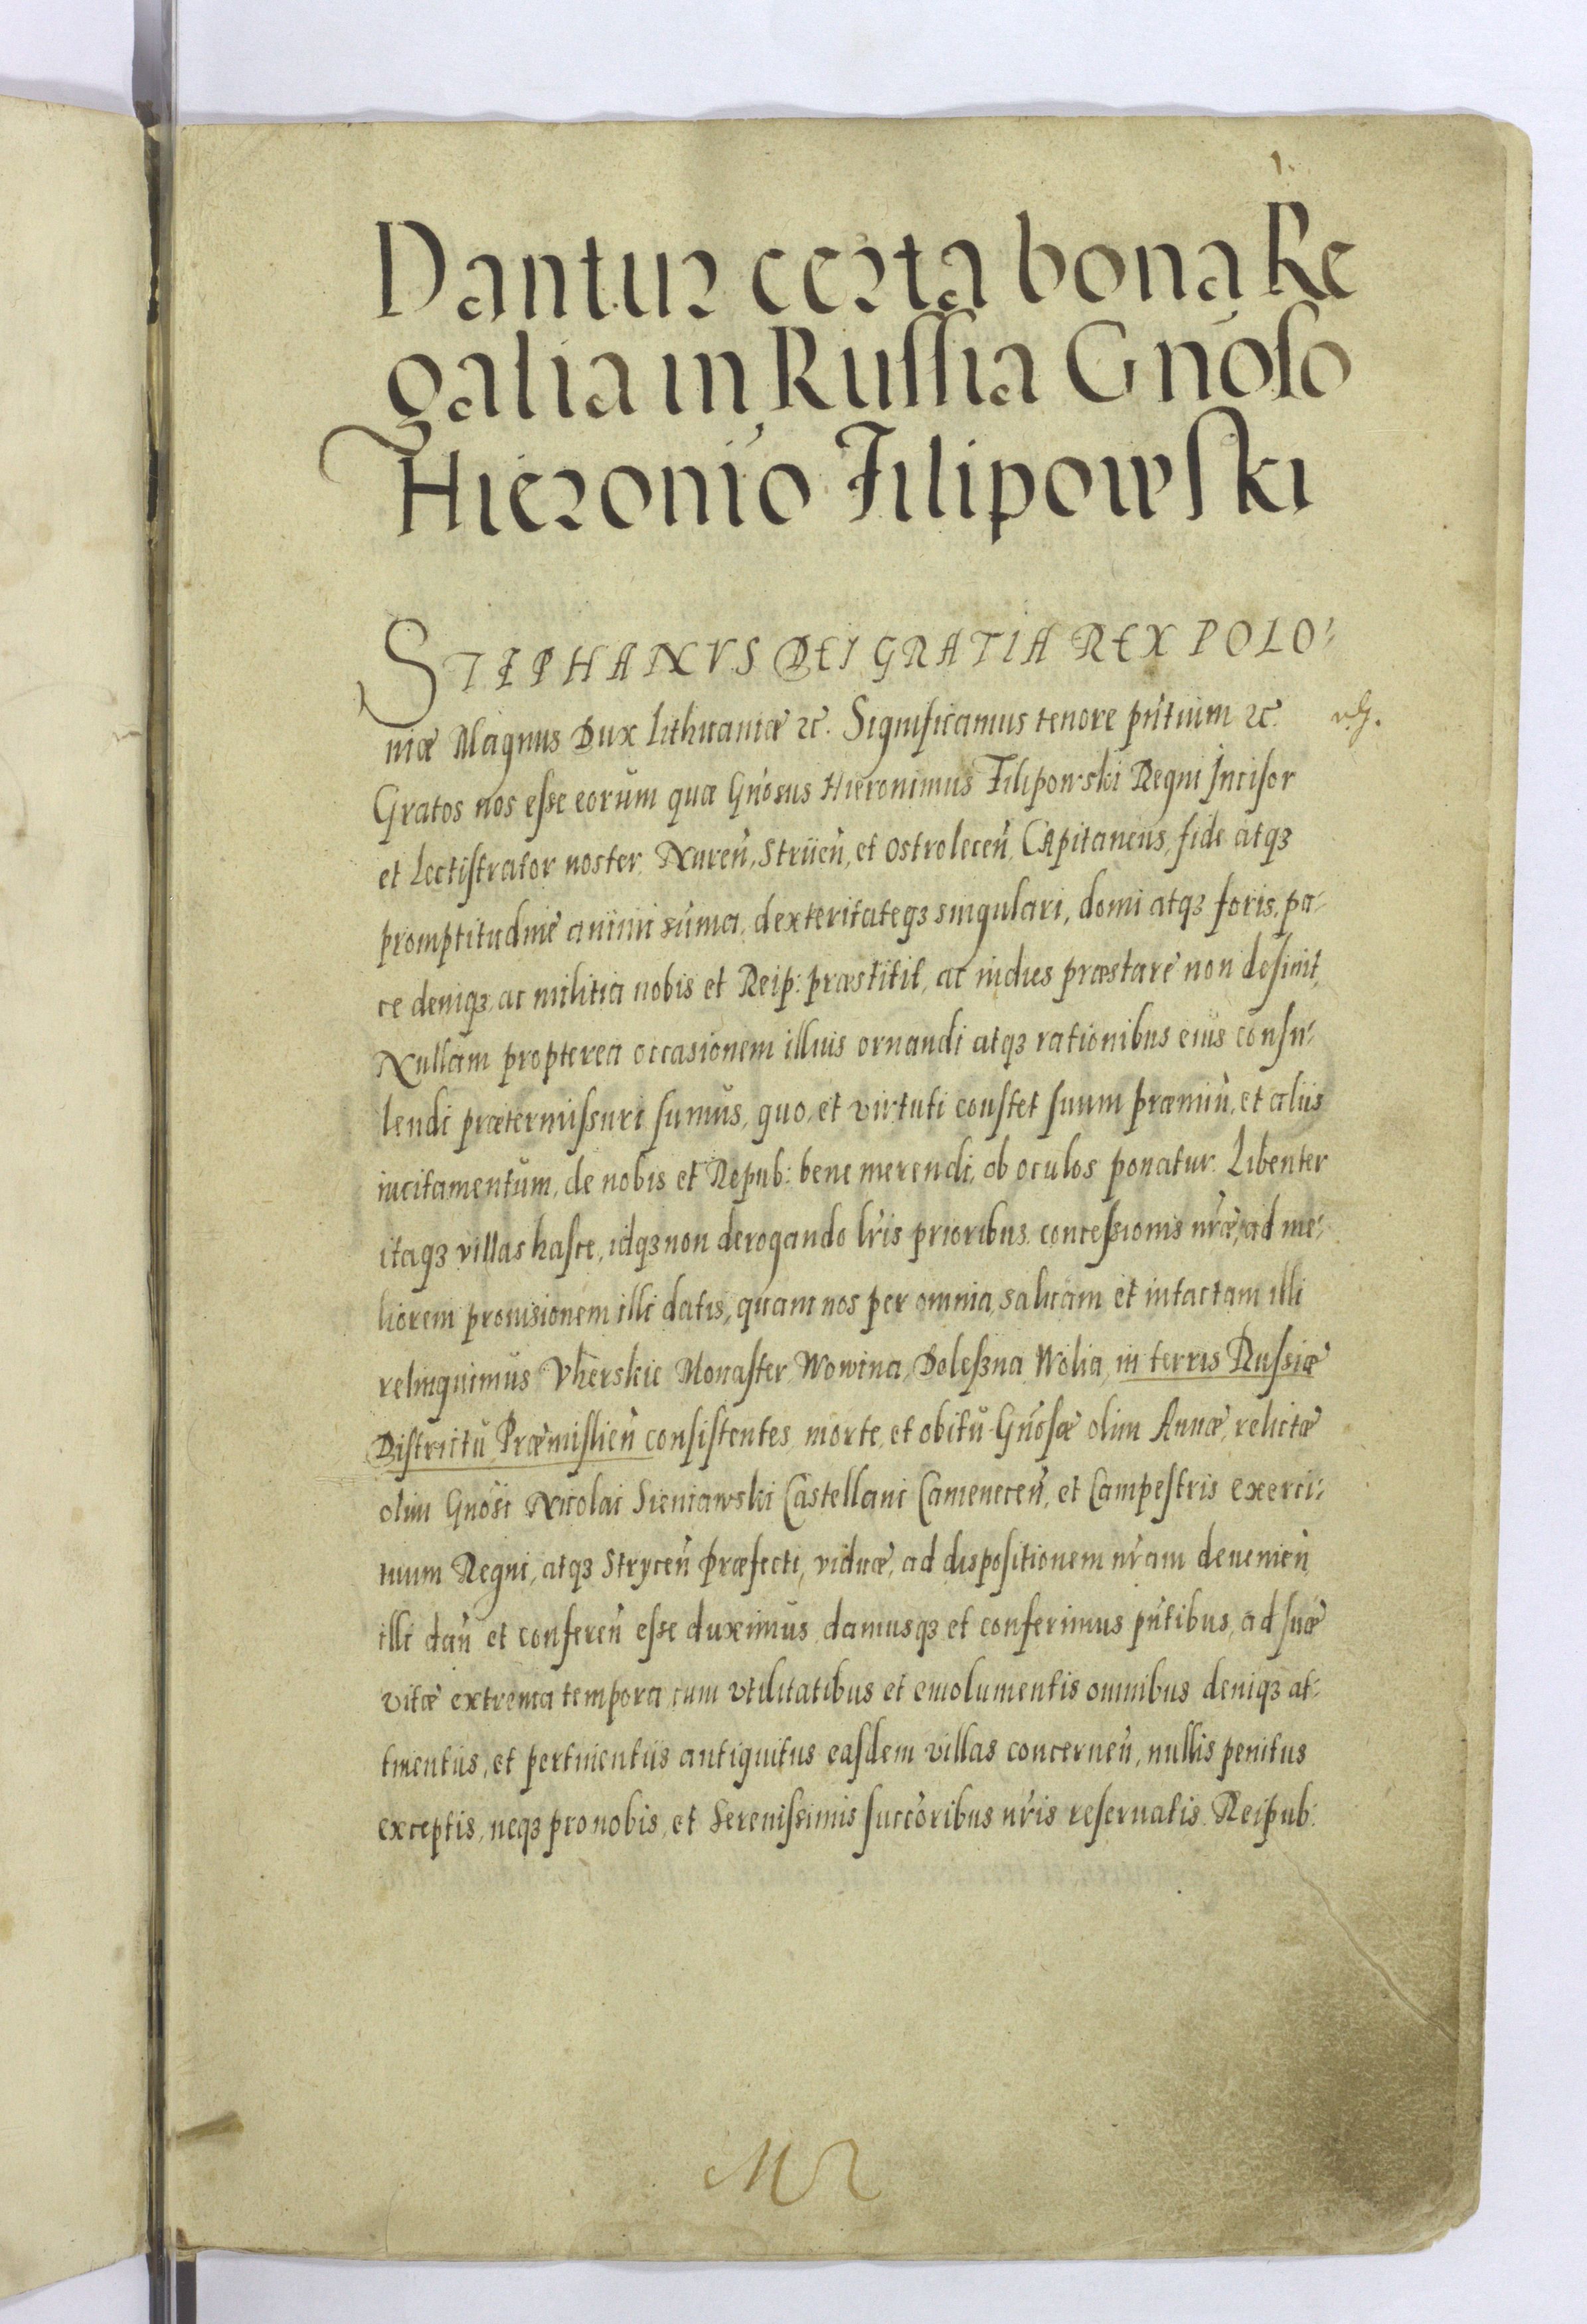 1.
Dantur certa bona Re
galia in Russia Gnoso
Hieronio Filipowski
STEPHANVS DEI GRATIA REX POLO:
niæ Magnus Dux Lithuaniæ ꝛc. Significamus tenore pñtium ꝛc.
Gratos nos esse eorum quæ Gñosus Hieronimus Filipowski Regni Incisor
et Lectistrator noster, Nureñ, Striieñ, et Ostroleceñ, Capitaneus, fide atqꝫ
promptitudine animi sūma, dexteritateqꝫ singulari, domi atqꝫ foris, pa:
ce deniqꝫ, ac militia nobis et Reip: præstitit, ac indies præstare non desinit,
Nullam propterea occasionem illius ornandi atqꝫ rationibus eius consu:
lendi prætermissuri sumus, quo, et virtuti constet suum præmiū, et aliis
incitamentum, de nobis et Repub: bene merendi, ob oculos ponatur. Libenter
itaqꝫ villas hasce, idqꝫ non derogando lr̃is prioribus concessionis nr̃æ, ad me:
liorem prouisionem illi datis, quam nos per omnia, saluam et intactam illi
relinquimus Vherskie Monaster, Wowina, Doleszna Wolia, in terris Russiæ
Districtū Præmislieñ consistentes, morte, et obitu Gñosæ olim Annæ, relictæ
olim Gnosi Nicolai Sieniawski Castellani Cameneceñ, et Campestris exerci:
tuum Regni, atqꝫ Stryceñ Præfecti, viduæ, ad dispositionem nr̃am deuenieñ
illi dañ et confereñ esse duximus, damusqꝫ et conferimus pñtibus, ad suæ
vitæ extrema tempora, cum vtilitatibus et emolumentis omnibus deniqꝫ at:
tinentiis, et pertinentiis antiquitus easdem villas concerneñ, nullis penitus
exceptis, neqꝫ pro nobis, et Serenissimis succōribus nr̃is reseruatis. Reipub: